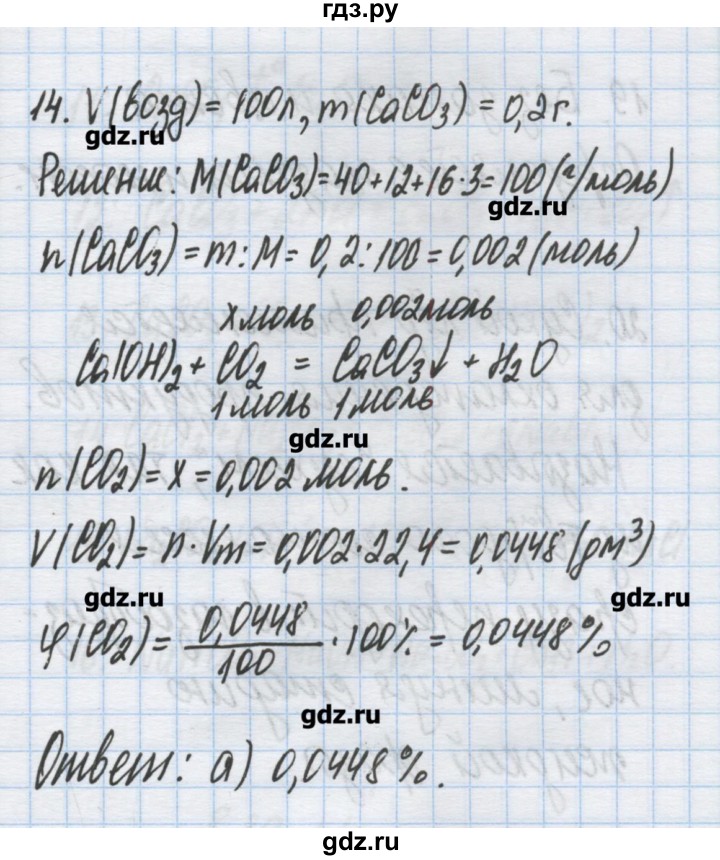 гдз.ру
14. V(возд) = 100л, m(CaCO3) = 0,2г.
gdz.ru
Решение: M(CaCO3) = 40+12+16·3 = 100 (г/моль)
gdz.ru
n(CaCO3) = m:M = 0,2:100 = 0,002 (моль)
x моль 0,002 моль
Ca(OH)2 + CO2 = CaCO3↓ + H2O
1 моль 1 моль
gdz.ru
n(CO2) = x = 0,002 моль.
V(CO2) = n·Vm = 0,002·22,4 = 0,0448 (дм³)
gdz.ru gdz.ru
φ(CO2) = 0,0448/100 · 100% = 0,0448%
gdz.ru
Ответ: а) 0,0448%.
gdz.ru